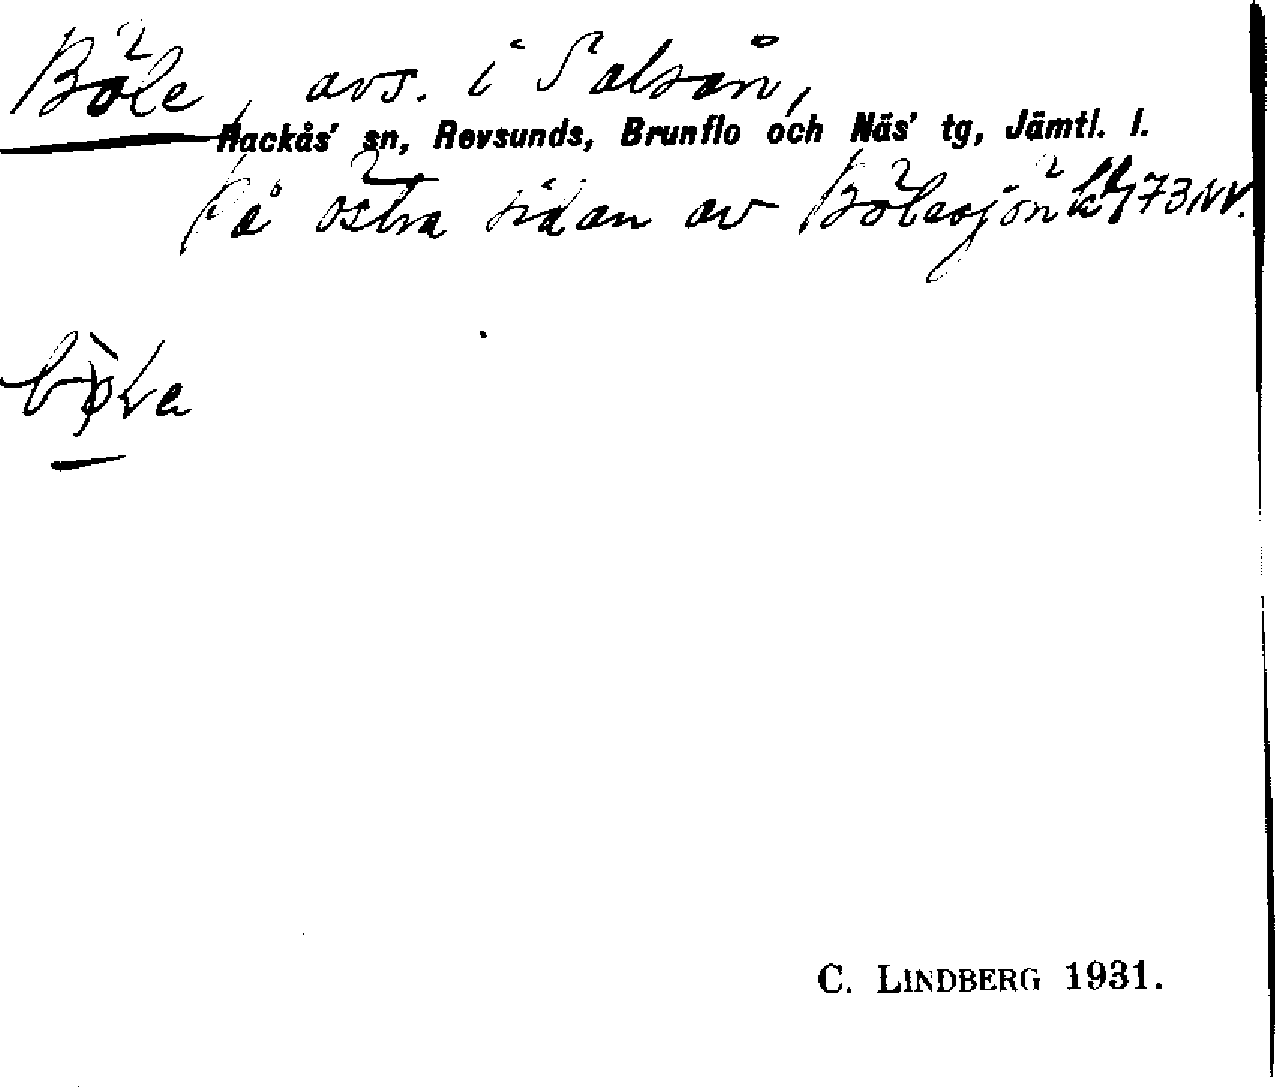 Böle, avs. i Salsån,
Hackås' sn, Revsunds, Brunflo och Näs' tg, Jämtl. l.
På östra sidan av Bölesjön kbl 73 NV.
bø̀La
C. LINDBERG 1931.